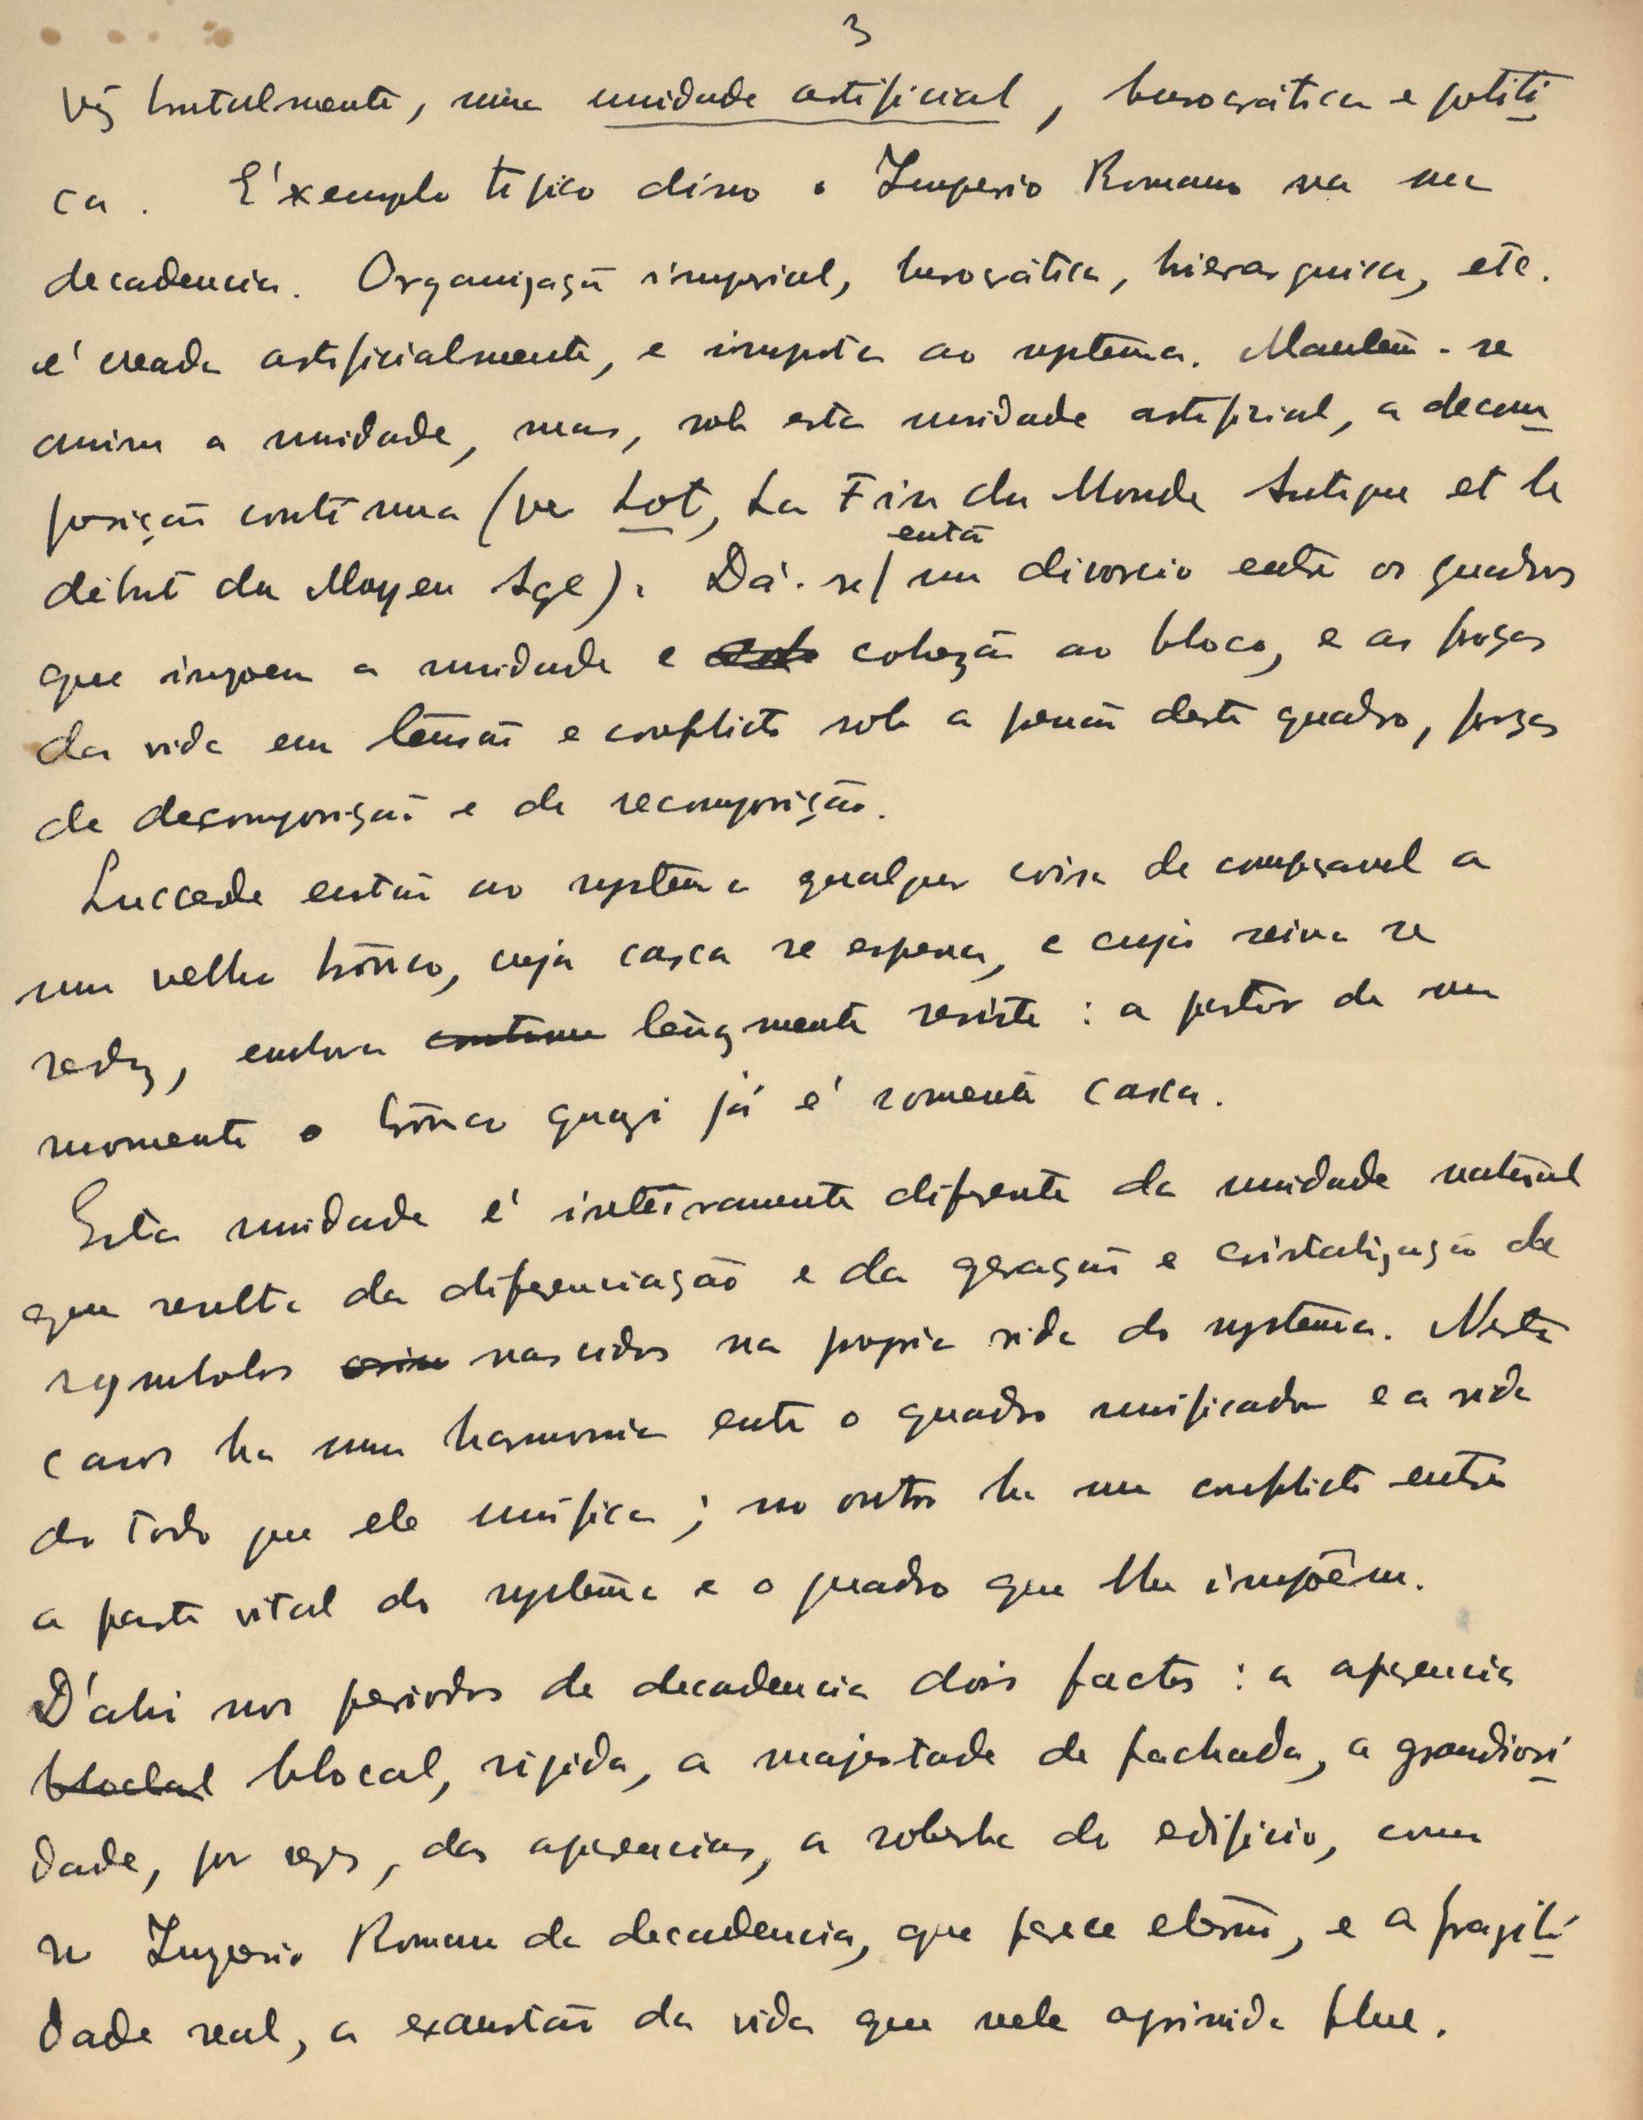 3
vez brutalmente, uma unidade artificial, burocrática e politi
ca. E' exemplo tipico disso o Imperio Romano na sua
decadencia. Organização imperial, burocrática, hierarquica, etc.
é creada artificialmente, e imposta ao systema. Mantém-se
assim a unidade, mas, sob esta unidade artificial, a decom
posição continua (ver Lot, La Fin du Monde Antique et le
début du Moyen Age). Dá-se então um divorcio entre os quadros
que impoem a unidade e cohezão ao bloco, e as forças
da vida em tensão e conflicto sob a pressão deste quadro, forças
de decomposição e de recomposição.
Succede então ao systema qualquer coisa de comparavel a
um velho tronco, cuja casca se espessa, e cuja seiva se
reduz, embora continua tenazmente resista: a partir de um
momento o tronco quazi já é somente casca.
Esta unidade é inteiramente diferente da unidade natural
que resulta da diferenciação e da geração e cristalização de
symbolos nascidos na propria vida do systema. Neste
caso ha uma harmonia entre o quadro unificador e a vida
do todo que ele unifica; no outro ha um conflicto entre
a parte vital do systema e o quadro que lhe impõem.
D'ahi nos periodos de decadencia dois factos: a aparencia
bloclal blocal, rigida, a majestade de fachada, a grandiosi
dade, por vezes, das aparencias, a soberba do edificio, como
no Imperio Romano da decadencia, que parece eterno, e a fragili
dade real, a exaustão da vida que nele oprimida flue.